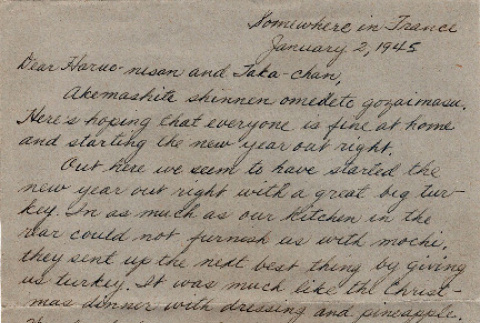 Somewhere in France
January 2, 1945
Dear Harue-nesan and Taka-chan,
Akemashite shinnen omedeto gozaimasu.
Here's hoping that everyone is fine at home
and starting the new year out right.
Out here we seem to have started the
new year out right with a great big tur-
key. In as much as our kitchen in the
rear could not furnish us with mochi,
they sent up the next best thing by giving
us turkey. It was much like the Christ-
mas dinner with dressing and pineapple.